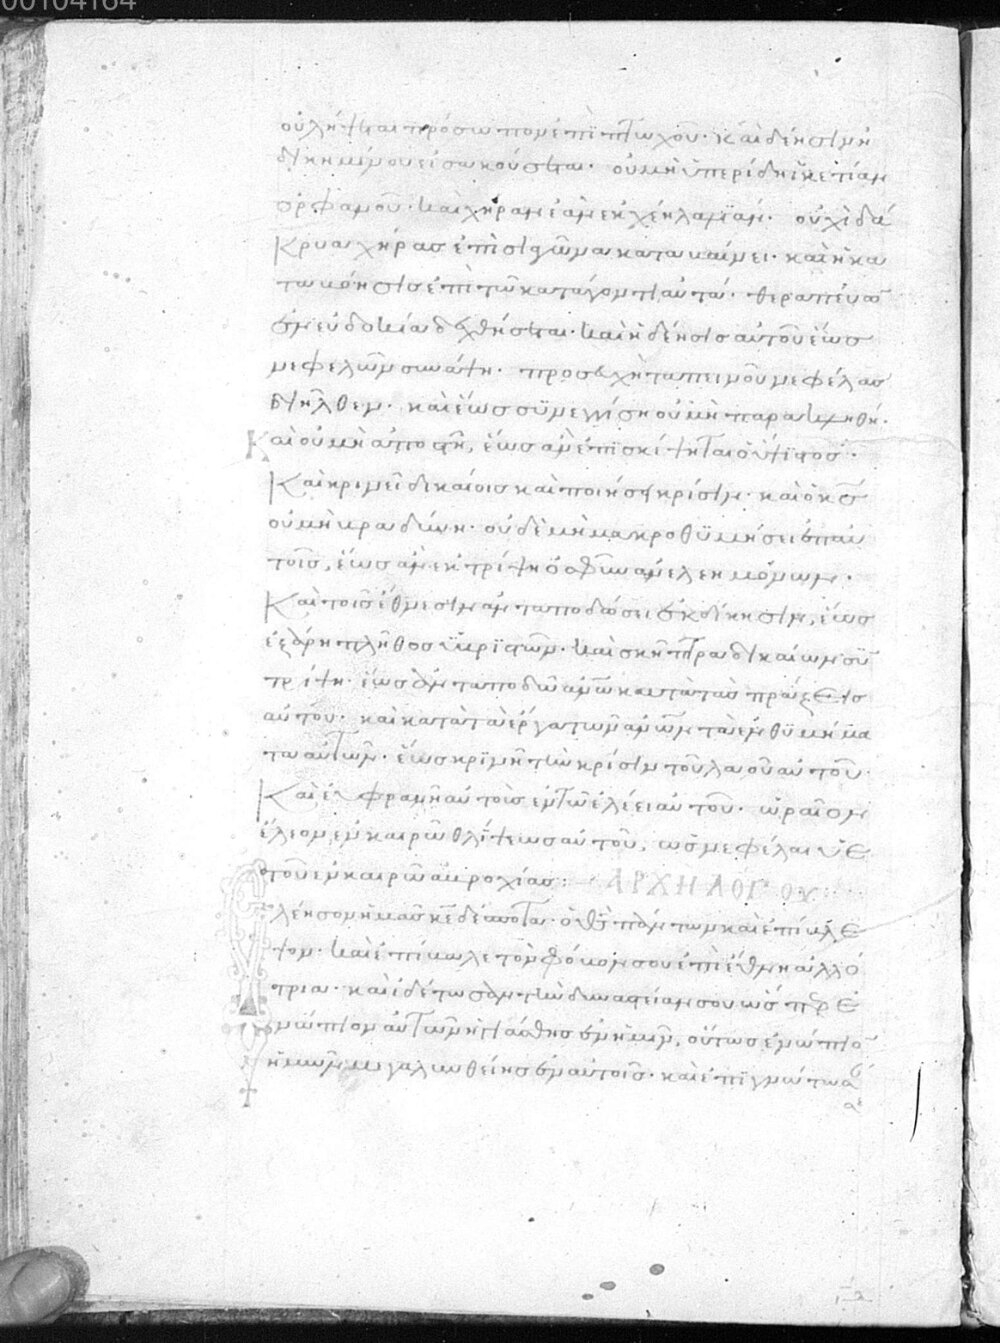 00104164
οὐ λήψεται πρόσωπον ἐπὶ πτωχοῦ· καὶ δέησιν ἠ
δικημένου εἰσακούσεται· οὐ μὴ ὑπερίδη ἱκετίαν
ὀρφανοῦ· καὶ χήραν ἐὰν ἐκχέη λαλιάν· οὐχὶ δά
κρυα χήρας ἐπὶ σιαγόνα καταβαίνει· καὶ ἡ κα
ταβόησις ἐπὶ τῶ καταγαγόντι αὐτά· θεραπεύων
ἐν εὐδοκία δεχθήσεται· καὶ ἡ δέησις αὐτοῦ ἕως
νεφελῶν συνάψη· προσευχὴ ταπεινοῦ νεφέλας
διῆλθεν· καὶ ἕως συνεγγίση οὐ μὴ παρακληθῆ·
Καὶ οὐ μὴ ἀποστῆ, ἕως ἂν ἐπισκέψηται ὁ ὕψιστος·
Καὶ κρινεῖ δικαίοις καὶ ποιήσει κρίσιν· καὶ ὁ κς
οὐ μὴ βραδύνη· οὐδὲ μὴ μακροθυμήσει ἐπ αὐ
τοῖς, ἕως ἂν ἐκτρίψη ὀσφῦν ἀνελεημόνων·
Καὶ τοῖς ἔθνεσιν ἀνταποδώσει ἐκδίκησιν, ἕως
ἐξάρη πλῆθος ὑβριστῶν· καὶ σκῆπτρα ἀδίκων συν
τρίψη· ἕως ἀνταποδῶ ἀνω κατὰ τὰς πράξεις
αὐτοῦ· καὶ κατὰ τὰ ἔργα τῶν ἀνων τὰ ἐνθυμήμα
τα αὐτῶν· ἕως κρίνη τὴν κρίσιν τοῦ λαοῦ αὐτοῦ·
Καὶ εὐφρανῆ αὐτοὺς ἐν τῶ ἐλέει αὐτοῦ· ὡραῖον
ἔλεον ἐν καιρῶ θλίψεως αὐτοῦ, ὡς νεφέλαι ὑε
τοῦ ἐν καιρῶ ἀβροχίας :— ΑΡΧΗ ΛΟΓΟΥ :
Ἐλέησον ἡμᾶς κε δέσποτα ὁ θς πάντων καὶ ἐπίβλε
ψον· καὶ ἐπίβαλε τὸν φόβον σου ἐπὶ ἔθνη ἀλλό
τρια· καὶ ἰδέτωσαν τὴν δυναστείαν σου ὥσπερ ἐ
νώπιον αὐτῶν ἡγιάσθης ἐν ἡμῖν, οὕτως ἐνώπιον
ἡμῶν μεγαλυνθείης ἐν αὐτοῖς· καὶ ἐπιγνώτωσαν